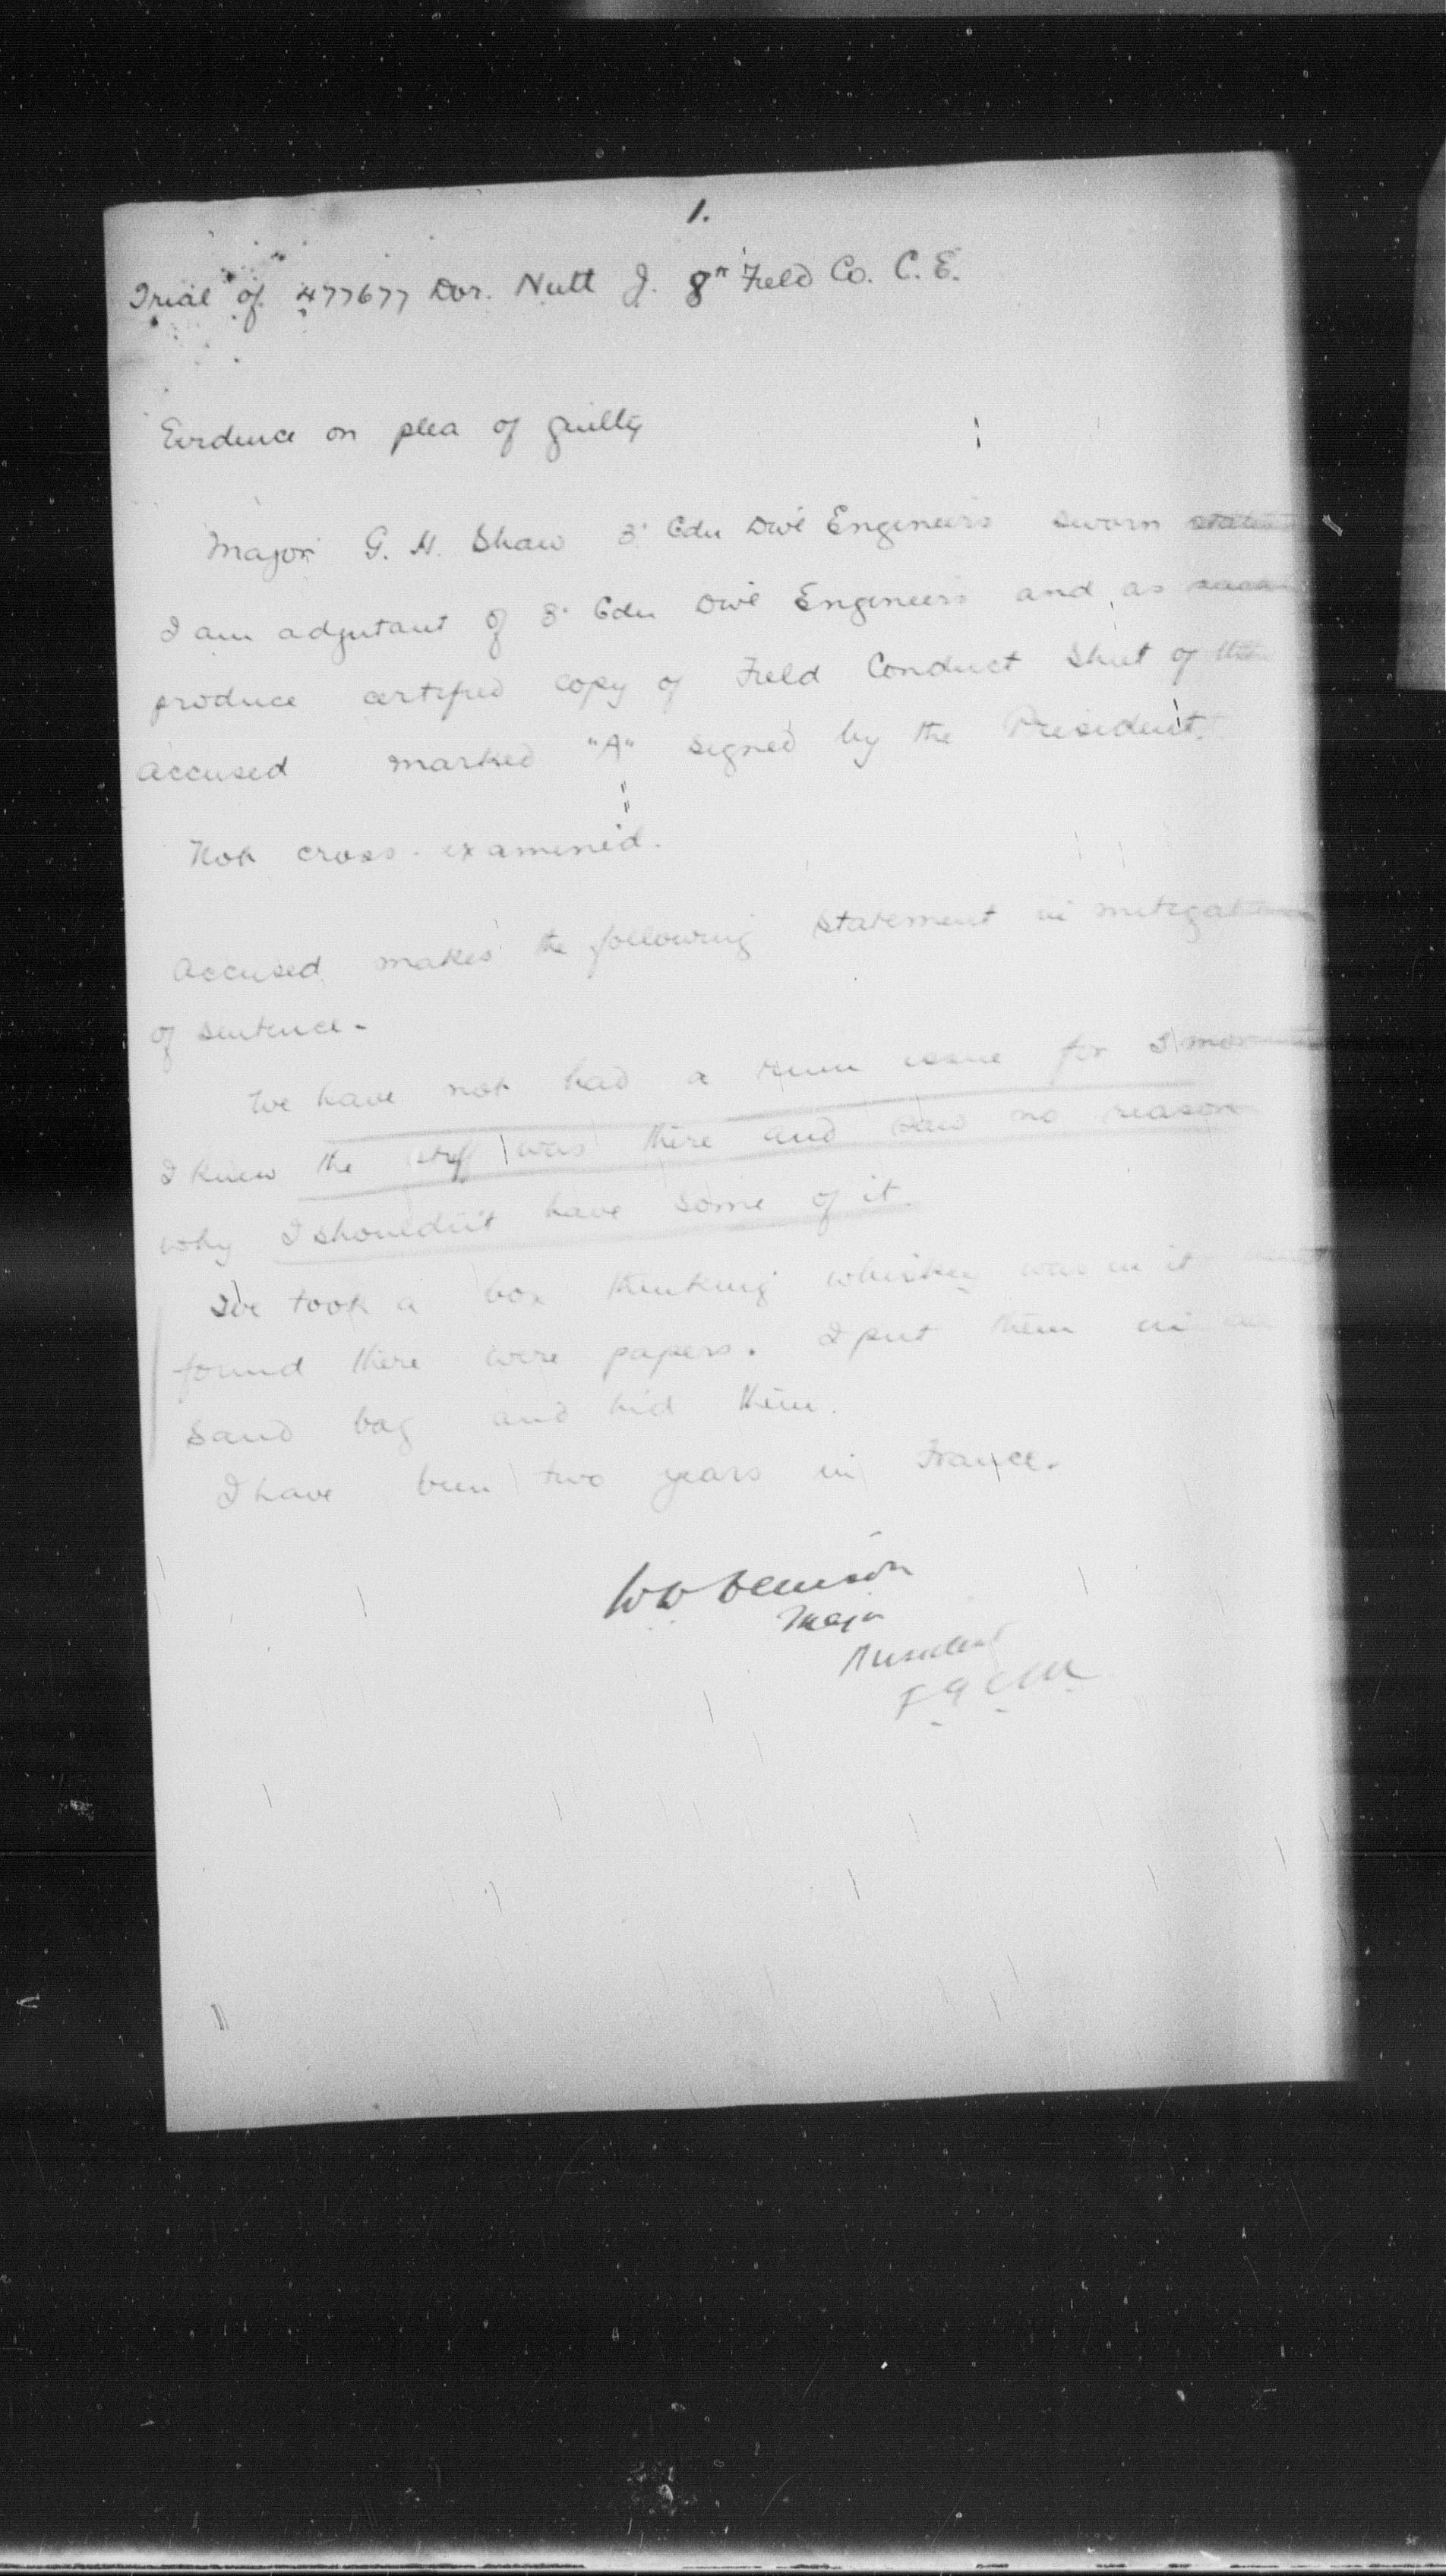 1.
Trial of 477677 Dvr. Nutt J. 8th Field Co. C.E.
Evidence on plea of guilty
Major G. H. Shaw 3 Cdn Divl Engineers sworn states
I am adjutant of 3 Cdn Divl Engineers and as such
produce certified copy of Field Conduct Sheet of the
accused marked "A" signed by the President.
Not cross-examined.
Accused makes the following statement in mitigation
of sentence-
We have not had a rum issue for 3 months
I knew the stuff was there and saw no reason
why I shouldn't have some of it.
We took a box thinking whiskey was in it
found there were papers. I put them in a
sand bag and hid them.
I have been two years in France.
W W Denison
Major
President
F G C M